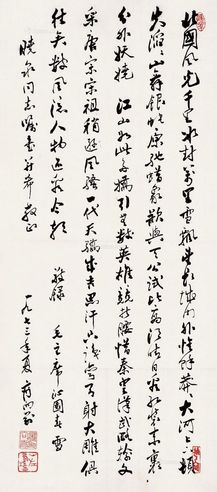 北國風光千里冰封萬里雪飄望長城內外惟餘莽莽大河上下頓
失滔滔山舞銀蛇原馳蠟象欲與天公試比高須晴日看紅裝素裹
分外妖嬈 江山如此多嬌引無數英雄競折腰惜秦皇漢武略輸文
采唐宗宋祖稍遜風騷一代天驕成吉思汗只識彎弓射大雕俱
往矣數風流人物還看今朝
敬錄
毛主席沁園春 雪
同志囑書並希教正
一九七三年夏